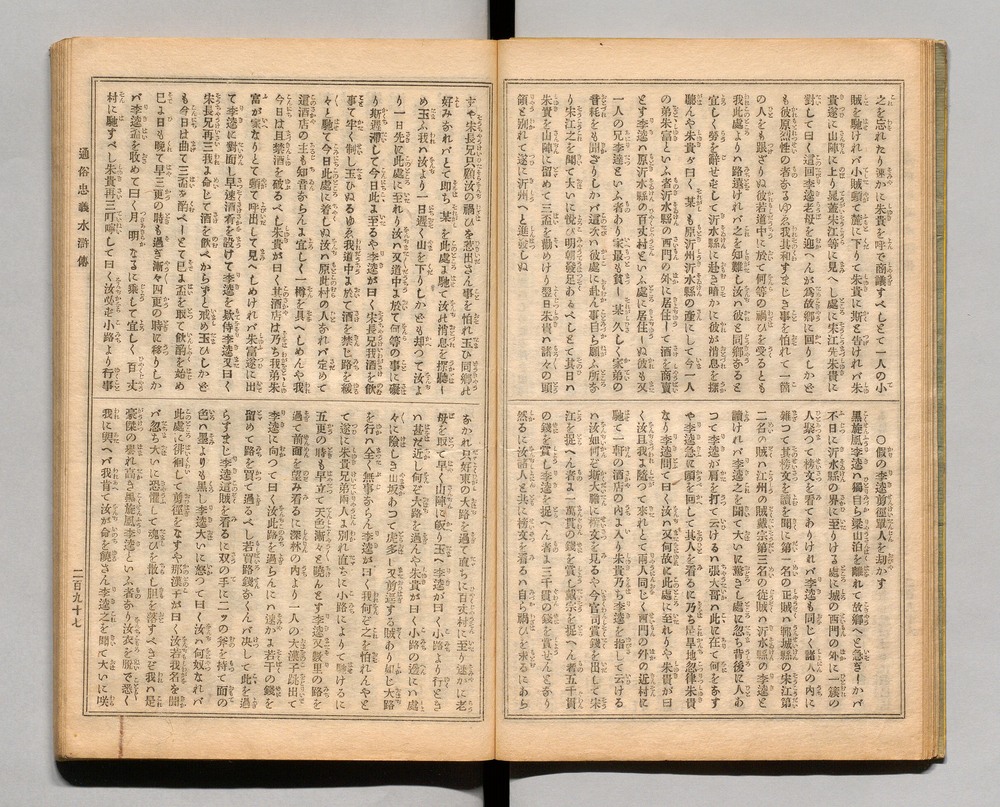 之を忘れたり速かに朱貴を呼で商議すべしとて一人の小
賊を馳けれバ小賊郷ち麓に下りて朱貴に斯と告けれバ朱
貴遂に山陣に上り晁蓋宋江等に見へし處に宋江先朱貴に
對して曰く這回李逵老母を迎へんが爲故郷に回りしかど
も彼原烈性の者なるゆゑ我其和すまじきを事を怕れて一箇
の人をも跟ざりぬ彼若道中に於て何等の禍ひを受るとも
我此處よりハ路遠けれバ之を知難し汝ハ彼と同郷なると
宜しく勞を辭せずして沂水縣に赴き暗かに彼が消息を探
聽んや朱貴が曰く、某も原沂州沂水縣の產にして今一人
の弟朱富といふ者沂水縣の西門の外に居住して酒を商賣
とす李逵ハ原沂水縣の百丈村といふ處に居住しぬ彼も又
一人の兄李達といふ者あり家最も貧し、某久しく家弟の
音耗をも聞ざりしかバ這次ハ彼處に赴ん事自ら願ふ所なり
り宋江之を聞て大いに悦び明朝發足あるべしとて其日ハ
朱貴を山陣に留めて三盃を勸めけり翌日朱貴ハ諸々の頭
領と別れて遂に沂州へと進發しぬ
○假の李逵剪徑單人を劫かす
黒旋風李逵ハ獨自ら梁山泊を離れて故郷へと急ぎしかバ
不日に沂水縣の界に至りける處に城の西門の外に一簇の
人聚つて榜文を看てありけれバ李逵も同じく諸人の内に
雜つて其榜文を讀を聞に第一名の正賊ハ鄆城縣の宋江第
二名の賊ハ江州の賊戴宗第三名の從賊ハ沂水縣の李逵と
讀けれバ李逵之を聞て大いに驚きし處に忽ち背後に人あ
つて李逵が肩を打て云けるハ張大哥ハ此に在て何をなす
や李逵急に頭を回して其人を看るに乃ち是旱地忽律朱貴
なり李逵問て曰く汝ハ又何故に此處に至れりや朱貴が曰
く汝且我に隨つて來れとて兩人同じく西門の外の近村に
馳て一軒の酒店の内に入り朱貴乃ち李逵を指して云ける
ハ汝如何ぞ斯大膽に榜文を見るや今官司賞錢を出して宋
江を捉へん者に一萬貫の錢を賞し戴宗を捉へん者五千貫
の錢を賞し李逵を捉へん者に三千貫の錢を賞せんとなり
然るに汝諸人と共に榜文を看るハ自ら禍ひを求るにあら
ずや宋長兄只願汝の禍ひを惹出さん事を怕れ玉ひ同郷の
好みなれバとて即ち某を此處に馳て汝が消息を探聽し
め玉ふ我ハ汝より一日遲く山を下りしかども却つて汝よ
り一日先に此處に至れり汝ハ又道中に於て何等の事に礙
り斯遲滯して今日此に至るや李逵が曰く宋長兄我酒を飲
事て牢く制し玉ひぬるゆゑ我道中に於て酒を禁じ路を緩
々と馳て今日此處に着しぬ汝ハ原此村の人なれバ定めて
這酒店の主も知音ならんに宜しく一樽を具へしめんや我
今日ハ且禁酒を破るべし朱貴が曰く此酒店ハ乃ち我弟朱
富が家なりとて頓て呼出して見へしめければ朱富遂に出
て李逵に對面し早速酒肴を設けて李逵を欵待李逵又曰く
朱長兄再三我に命じて酒を飲べからずと戒め玉ひしかど
も今日ハ且曲て三盃を酌べしとて已に盃を取て飲酒を始め
巳に日も晩て早三更の時も過ぎ漸々四更の時に移りしか
バ李逵盃を收めて曰く月明かなるに乗して宜しく百丈
村に馳すべし朱貴再三叮嚀して曰く汝必ず小路より行事
なかれ只好東の大路を過て直ちに百丈村に至り速かに老
母を取て早く山陣に皈り玉へ李逵が曰く小路より行とき
ハ甚だ近し何ぞ大路を過んや朱貴が曰く小路の邊にハ處
々に險しき山坂あつて虎多し又剪徑する賊あり同じ大路
を行ハ全く無事ならん李逵が曰く我何ぞ之を怕れんやと
て遂に朱貴兄弟兩人に別れ直ちに小路によりて馳けるに
五更の時も早立て天色漸々と曉んとす李逵又數里の路を
過て前面を望み看るに深林の内より一人の大漢子跳出て
李逵に向つて曰く汝此路を過ならハ速かに若干の錢を
留めて路を買て過るべし若買路錢なくんバ决して此を過
らすまじ李逵這賊を看るに双の手に二ッの斧を持て面の
色ハ墨よりも黒し李逵大いに怒つて曰く汝ハ何奴なれバ
此處に徘徊して剪徑をなすぞ那漢子が曰く汝若我名を聞
バ忽ち大いに恐懼して魂ひを散し胆を落すべきぞ我ハ是
豪傑の聞れ高き黑旋風李逵といふ者なり汝衣を脱で悉く
我に與へバ我肯て汝が命を饒さん李逵之を聞て大いに咲
通俗忠義水滸傳
二百九十七